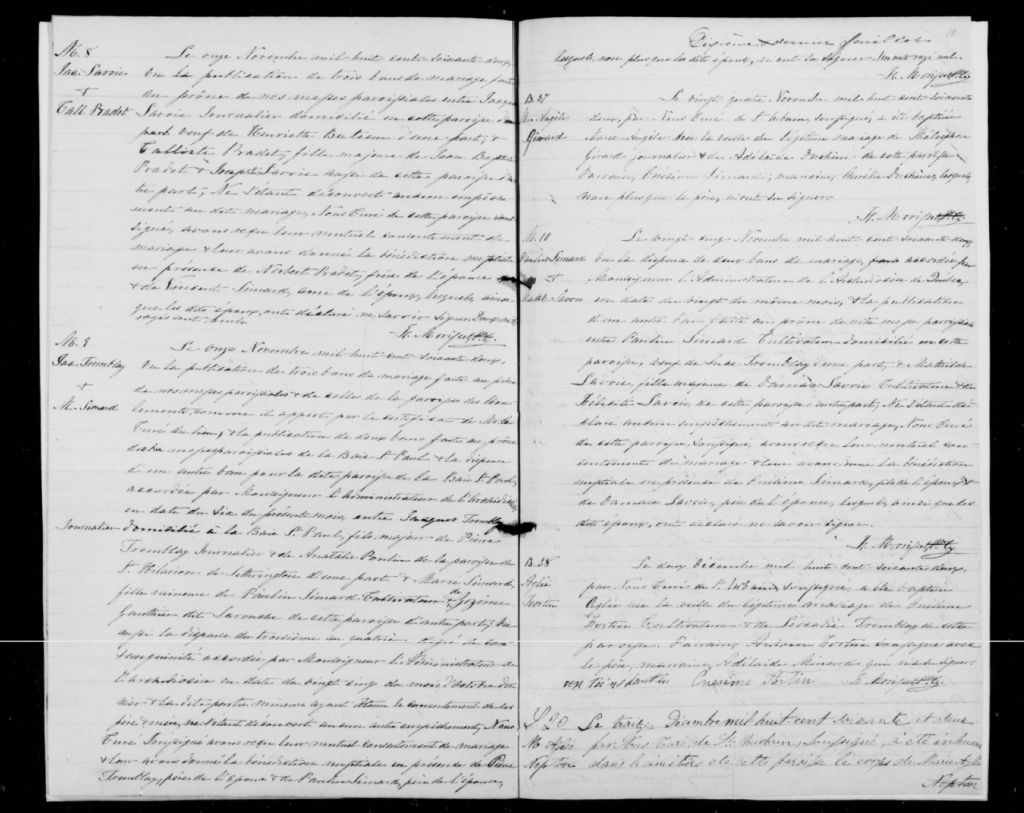 M. 8
Jac. Savoie
+
Cali. Bradet
Le onze Novembre mil huit cent soixante deux,
Vu la publication de trois bans de mariage faite
au prône de nos messes paroissiales entre Jacques
Savoie Journalier domicilié en cette paroisse d'une
part veuf de Henriette d'une part; &
Calliste Bradet, fille majeure de Jean Baptiste
Bradet & Josephte Savoie aussi de cette paroisse d'au
tre part; Ne s'étant découvert aucun empêche
ment au dit mariage, Nous Curé de cette paroisse sous
signé, avons reçu leur mutuel consentement de
mariage & leur avons donné la bénédiction nuptiale
en présence de Norbert Bradet, frère de l'épouse
& de Vincent Simard, ami de l'époux, lesquels ainsi
que les dits époux, ont déclaré ne savoir signer.
M. 9
Jac. Tremblay
+
M. Simard
Le onze Novembre mil huit cent soixante deux,
Vu la publication de trois bans de mariage faite au prône
de nos messes paroissiales & de celles de la paroisse des Ebou
lements, comme il appert par le certificat de Mr. le
Curé du lieu, & la publication de deux bans faite au prône
des messes paroissiales de la Baie St. Paul & la dispense
d'un autre ban pour la dite paroisse de la Baie St. Paul,
accordée par Monseigneur l'administrateur de l'archidiocèse
en date du six du présent mois, entre Jacques Tremblay
Journalier domicilié à la Baie St. Paul, fils majeur de Pierre
Tremblay Journalier & de Anatalie Poulin de la paroisse de
St. Hilarion de Settrington d'une part & Marie Simard,
fille mineure de Paulin Simard Cultivateur & de Zozime
Gauthier dit Larouche de cette paroisse d'autre part; Vu
aussi la dispense du troisième au quatrième degré de con
sanguinité accordée par Monseigneur l'Administrateur de
l'archidiocèse en date du vingt cinq du mois d'Octobre der
nier & la dite partie mineure ayant obtenu le consentement de ses
père & mère, ne s'étant découvert aucun autre empêchement, Nous
Curé Soussigné avons reçu leur mutuel consentement de mariage
& leur avons donné la bénédiction nuptiale en présence de Pierre
Tremblay, père de l'époux & de Paulin Simard, père de l'épouse,
Dixième & dernier feuillet
10
lesquels, non plus que les dits époux, n'ont su signer.
B. 27
M. Angèle
Girard
Le vingt quatre Novembre mil huit cent soixante
deux, par Nous Curé de St Urbain, soussigné, a été baptisée
Marie Angèle née la veille du légitime mariage de
Girard journalier & de Adélaïde de cette paroisse
Parrain, Onésime Simard; marraine, lesquels,
non plus que le père, n'ont su signer.
M. 10
Paulin Simard
+
Math. Savoie
Le vingt cinq Novembre mil huit cent soixante deux,
Vu la dispense de deux bans de mariage, accordée par
Monseigneur l'Administrateur de l'Archidiocèse de Québec,
en date du vingt du même mois, & la publication
d'un autre ban faite au prône de notre messe paroissiale
entre Paulin Simard Cultivateur domicilié en cette
paroisse, veuf de Tremblay d'une part; & Mathilde
Savoie, fille majeure de Damase Savoie Cultivateur & de
Félicité Savoie de cette paroisse d'autre part; Ne s'étant dé
claré aucun empêchement au dit mariage, Nous Curé
de cette paroisse, soussigné, avons reçu leur mutuel con
sentement de mariage & leur avons donné la bénédiction
nuptiale en présence de Onésime Simard, fils de l'époux &
de Damase Savoie, père de l'épouse, lesquels, ainsi que les
dits époux, ont déclaré ne savoir signer.
B. 28
Aglée
Fortin
Le deux Décembre mil huit cent soixante deux,
par Nous Curé de St. Urbain soussigné, a été baptisée
Aglée née la veille du légitime mariage de Onésime
Fortin Cultivateur & de Tremblay de cette
paroisse. Parrain, Antoine Fortin soussigné avec
le père, marraine, Adélaïde qui n'a su signer.
Onesime Fortin
S 20
M. Aglé
Nepton
Le treize Décembre mil huit cent soixante et deux
par Nous Curé de St. Urbain, Soussigné, a été inhumé
dans le cimetière de cette paroisse le corps de Marie Aglé
Nepton